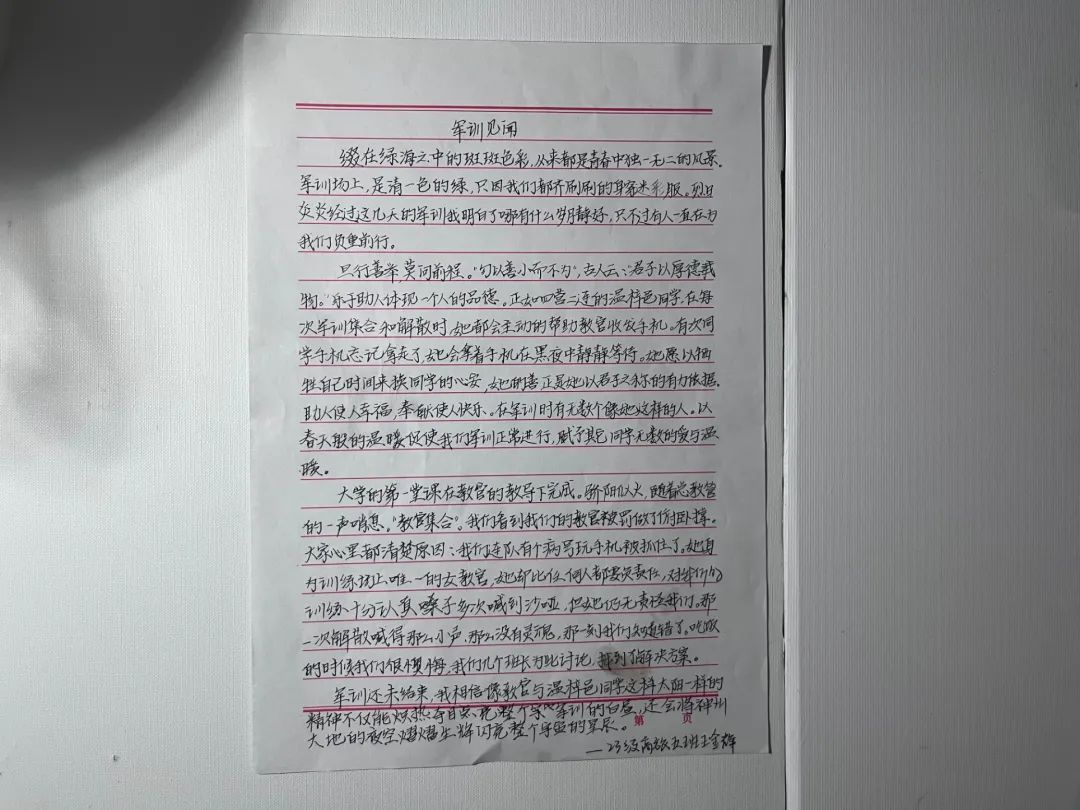 军训见闻
缀在绿海之中的斑斑色彩,从来都是青春中独一无二的风景.
军训场上,是清一色的绿,只因我们都齐刷刷的身穿迷彩服。烈日
炎炎经过这几天的军训我明白了哪有什么岁月静好,只不过有人一直在为
我们负重前行。
旦行善举,莫问前程。“勿以善小而不为”,古人云:君子以厚德载
物。”乐于助人体现一个人的品德。正如四营二连的温梓邑同学,在每
次军训集合和解散时,她都会主动的帮助教官收发手机。有次同
学手机忘记拿走了,她会拿着手机在黑夜中静静等待。她愿以牺
牲自己时间来换同学的心安,她的善正是她以君子之称的有力依据.
助人使人幸福,奉献使人快乐。在军训时有无数个像她这样的人。以
春天般的温暖促使我们军训正常进行,赋予其它同学无数的爱与温
暖。
大学的第一堂课在教官的教导下完成。骄阳似火,随着总教官
的一声哨息。“教官集合”。我们看到我们的教官被罚做了俯卧撑。
大家心里都清楚原因:我们连队有个病号玩手机被抓住了。她身
为训练场上唯一的女教官,她却比任何人都要负责任,对我们的
训练十分认真嗓子多次喊到沙哑,但她仍无责怪我们。那
一次解散喊得那么小声,那么没有灵魂,那一刻我们知道错了。吃饭
的时候我们很懊悔,我们几个班长为此讨论,找到了解决方案。
军训还未结束,我相信像教官与温梓邑同学这样太阳一样的
精神不仅能炽热夺目点亮整个军训的白昼,还会将神州
大地的夜空熠熠生辉闪亮整个宇宙的星辰。
第 页
——23级高旅五班王金辉